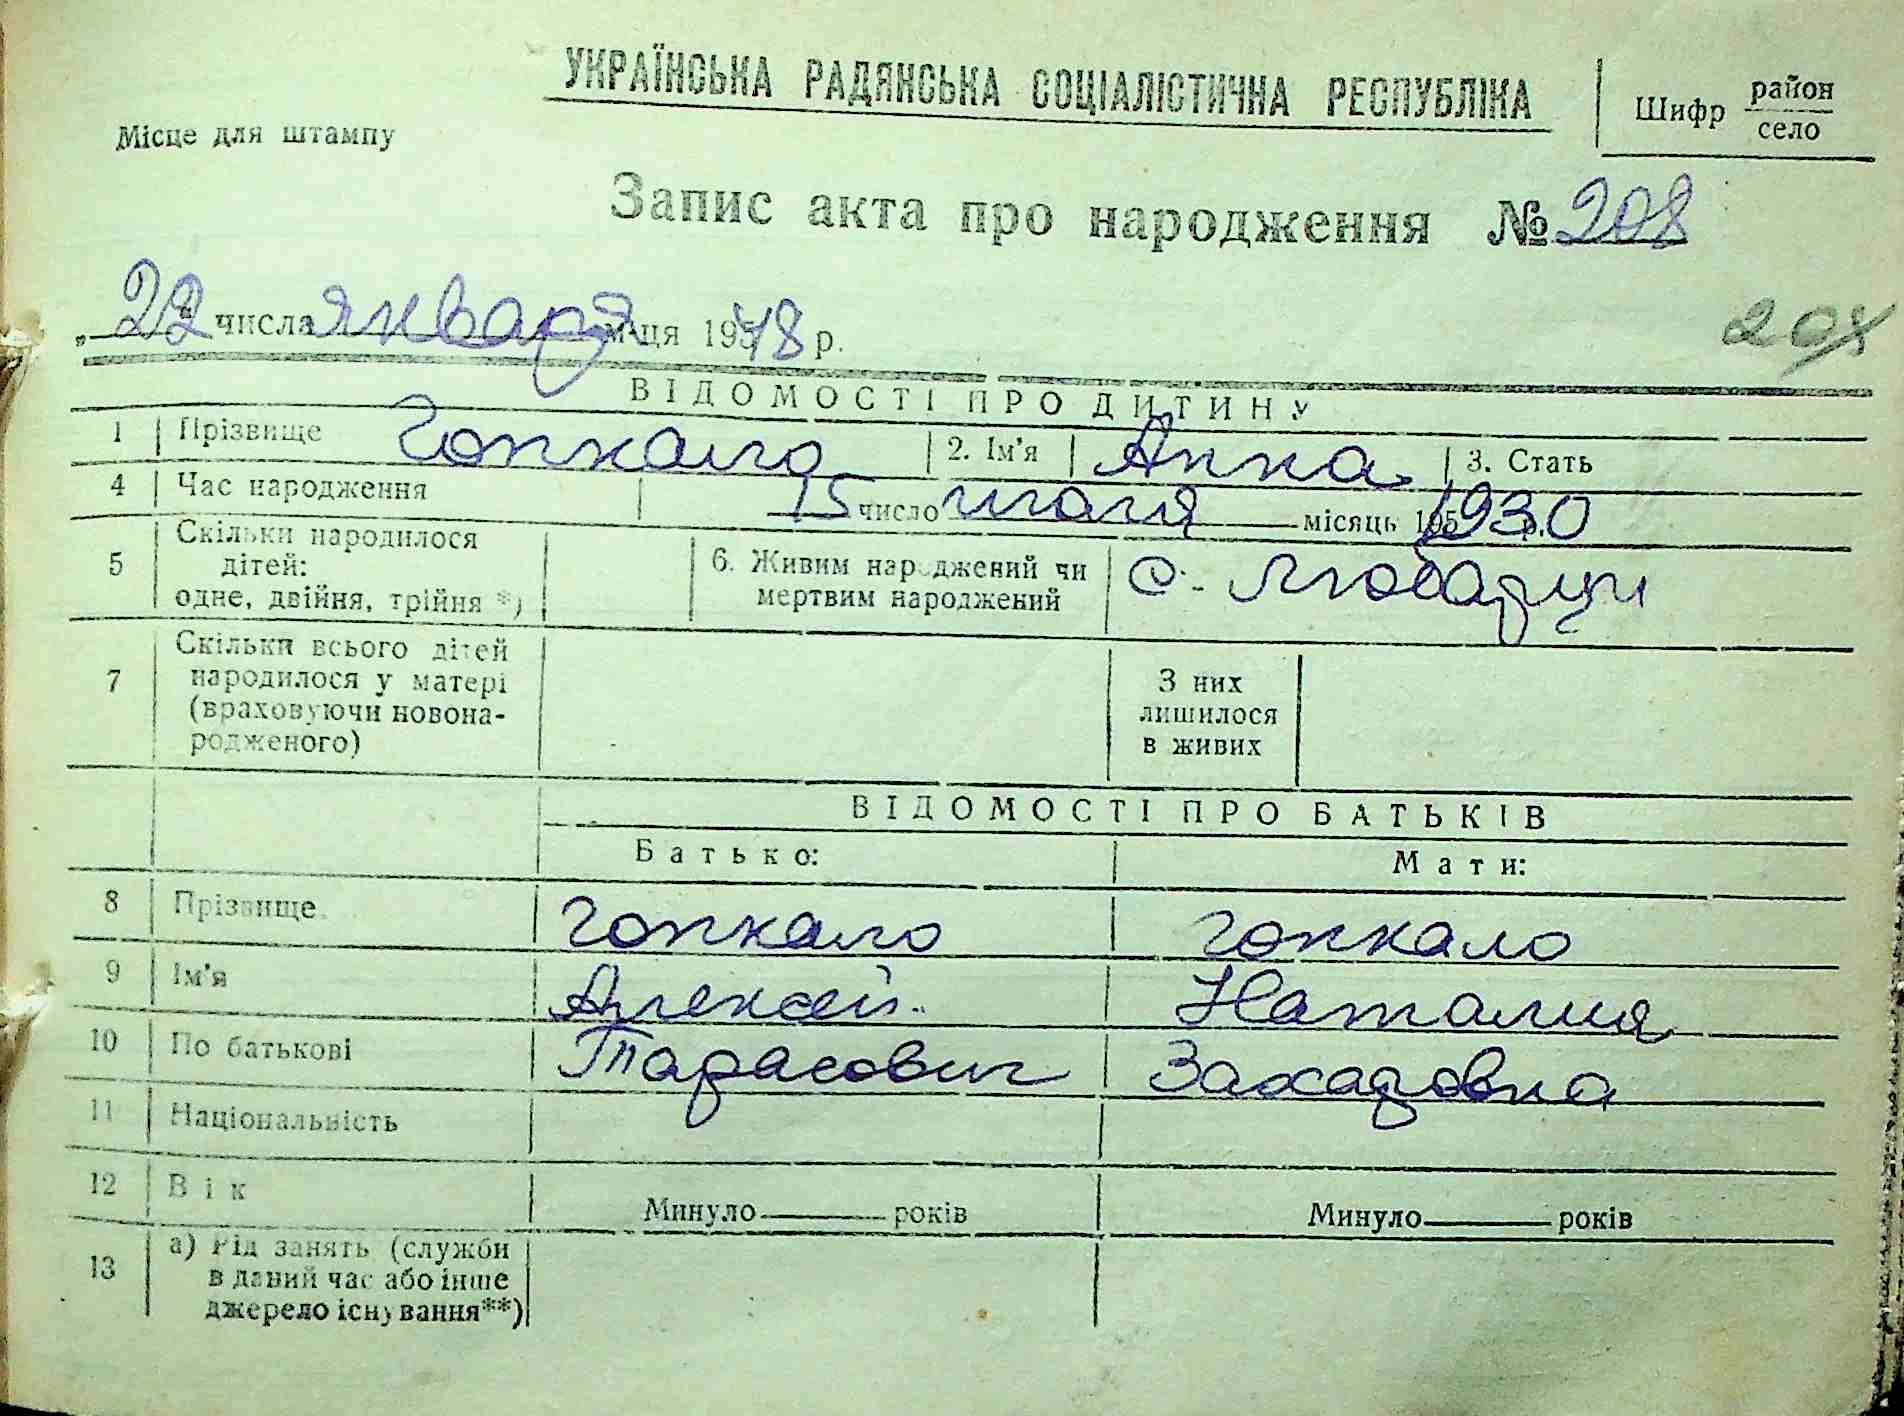 УКРАЇНСЬКА РАДЯНСЬКА СОЦІАЛІСТИЧНА РЕСПУБЛІКА
Шифр район
село
Місце для штампу
Запис акта про народження № 208
„22" числа января м-ця 1948 р.
208
ВІДОМОСТІ ПРО ДИТИНУ
1 Прізвище Гопкало 2. Ім'я Анна 3. Стать
4 Час народження 15 число июля місяць 1930
5 Скільки народилося дітей: одне, двійня, трійня *)
6. Живим народжений чи мертвим народжений с. Любарцы
7 Скільки всього дітей народилося у матері (враховуючи новона-
родженого)
З них лишилося в живих
ВІДОМОСТІ ПРО БАТЬКІВ
Батько: Мати:
8 Прізвище Гопкало Гопкало
9 Ім'я Алексей Наталия
10 По батькові Тарасович Захаровна
11 Національність
12 Вік Минуло років Минуло років
13 а) Рід занять (служби
в даний час або інше
джерело існування**)